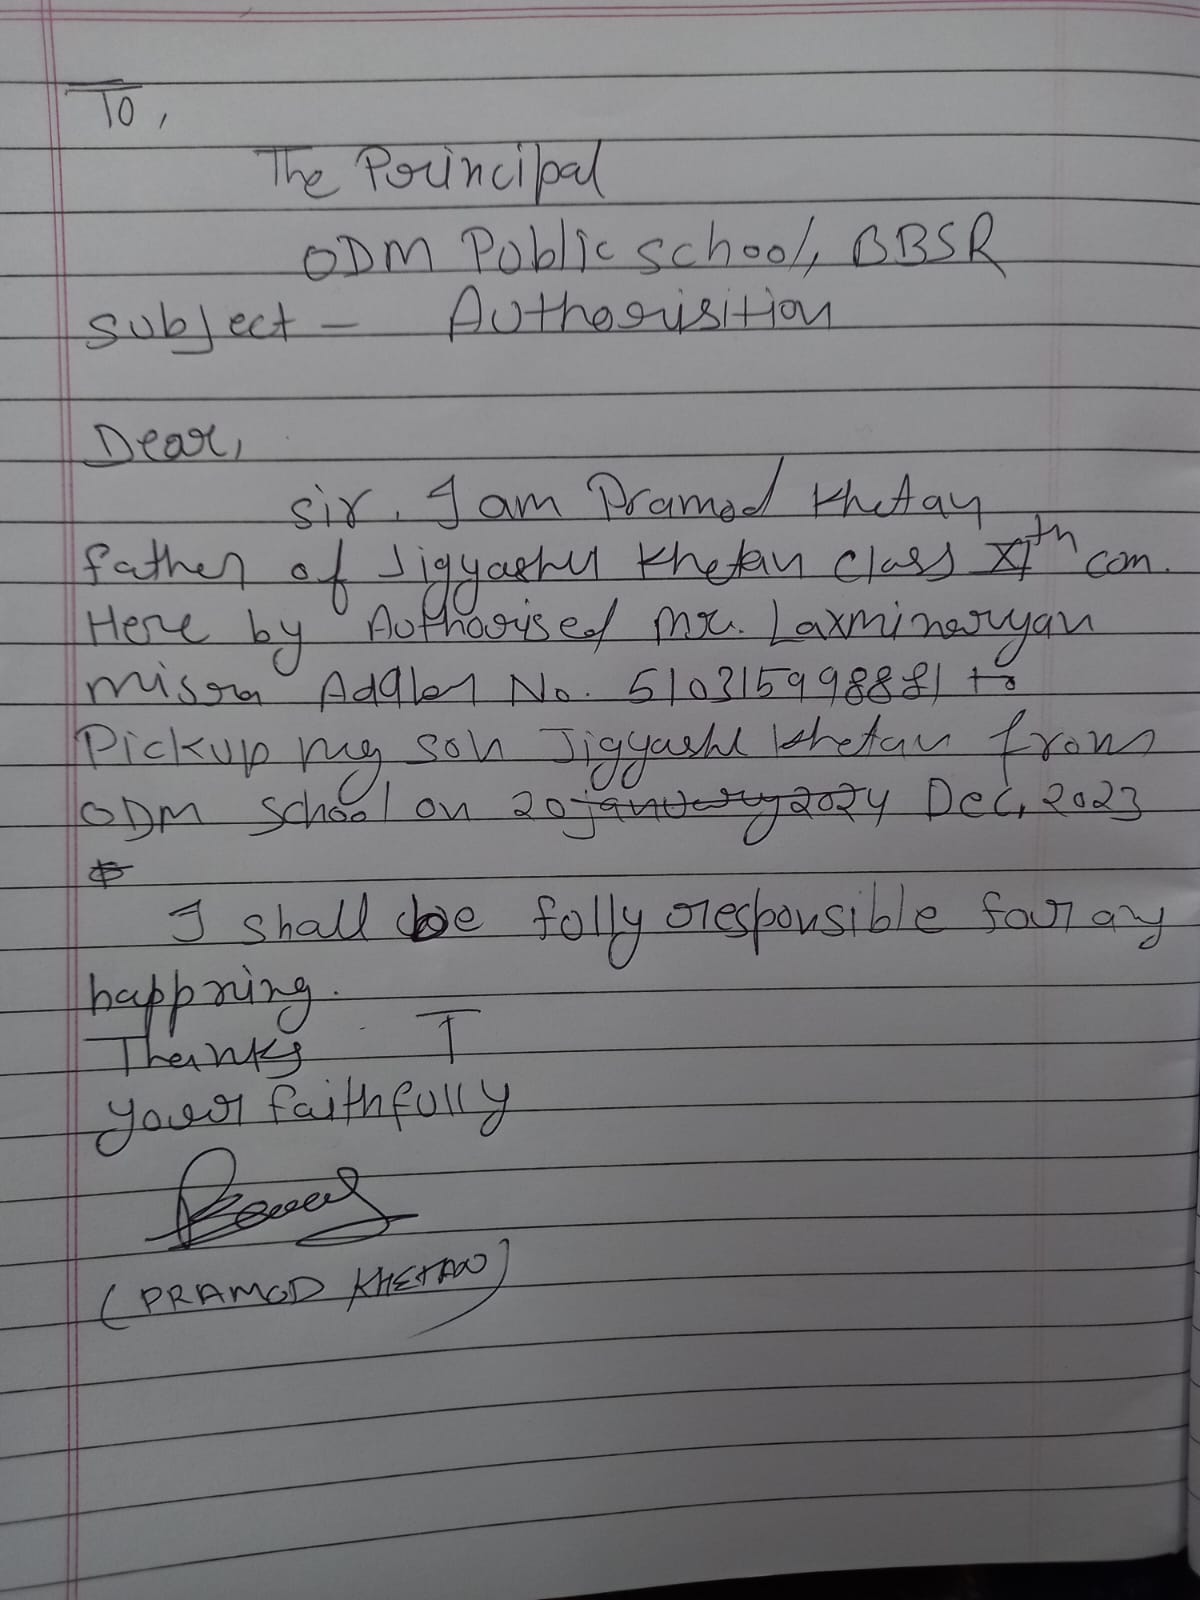 To,
The Principal
ODM Public school, BBSR
subject - Authorisition
Dear,
sir, I am Pramod Khetan
father of Jigyashu Khetan class XIth com.
Here by Authorised Mr. Laxminaryan
misra Addher No. 510315998881 to
Pickup my son Jigyashu khetan from
ODM School on 20 january 2024 Dec, 2023
I shall be folly responsible for any
happning.
Thanks T
your faithfully
(PRAMOD KHETAN)